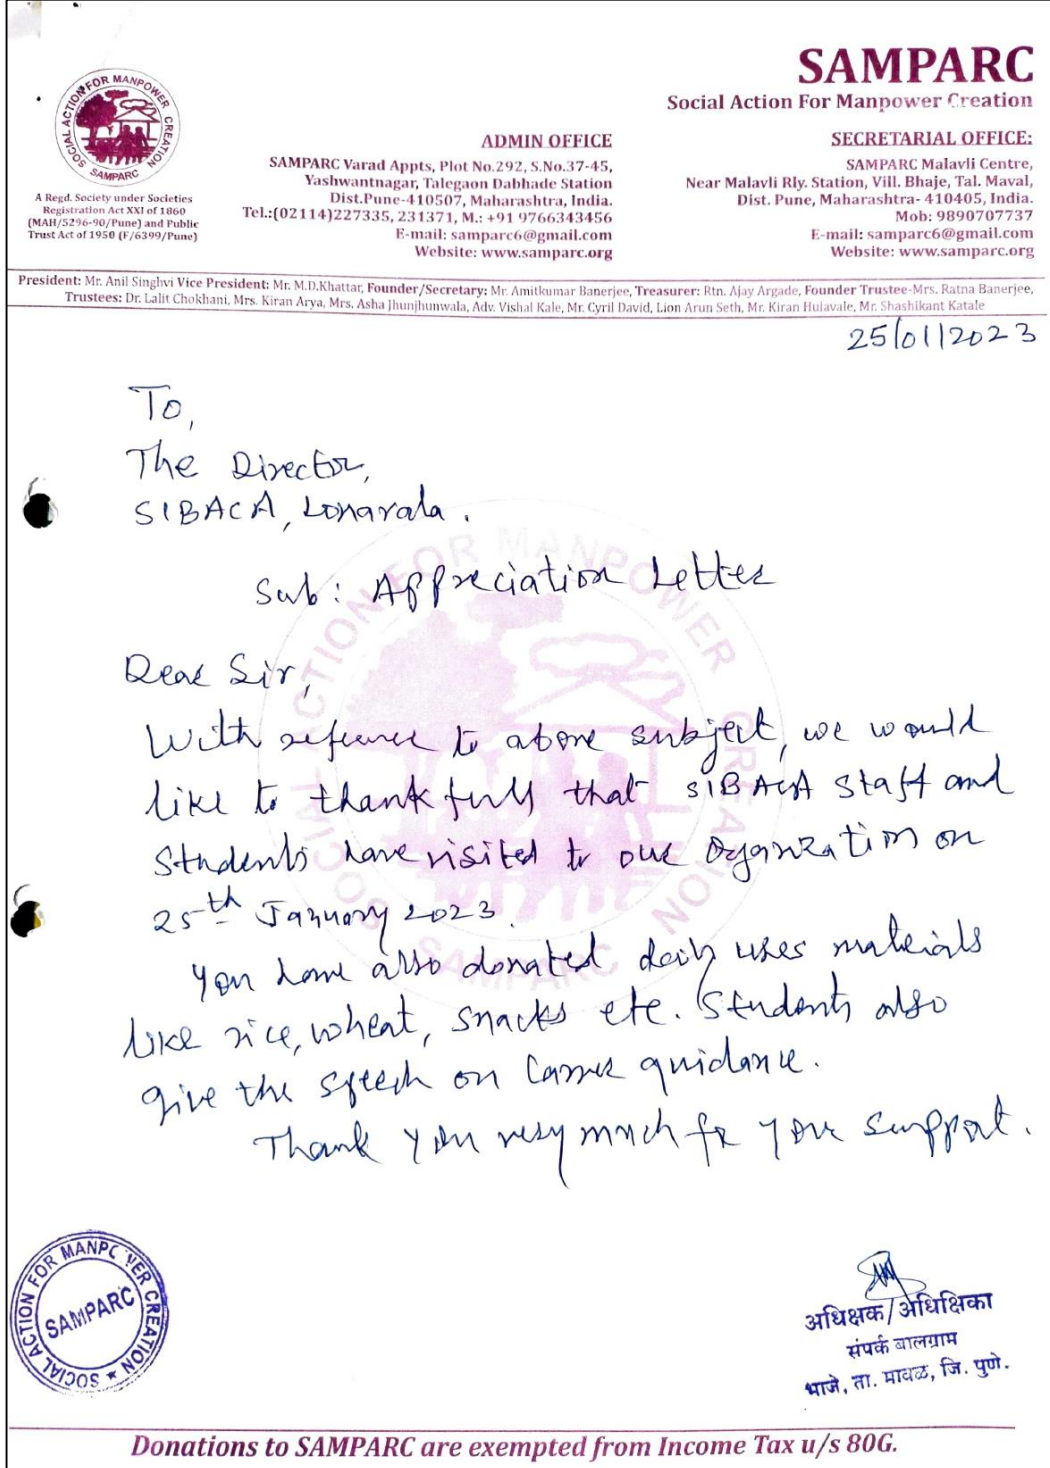 SAMPARC
Social Action For Manpower Creation
SOCIAL ACTION FOR MANPOWER CREATION
SAMPARC
A Regd. Society under Societies
Registration Act XXI of 1860
(MAH/5296-90/Pune) and Public
Trust Act of 1950 (F/6399/Pune)
ADMIN OFFICE
SAMPARC Varad Appts, Plot No.292, S.No.37-45,
Yashwantnagar, Talegaon Dabhade Station
Dist.Pune-410507, Maharashtra, India.
Tel.:(02114)227335, 231371, M.: +91 9766343456
E-mail: samparc6@gmail.com
Website: www.samparc.org
SECRETARIAL OFFICE:
SAMPARC Malavli Centre,
Near Malavli Rly. Station, Vill. Bhaje, Tal. Maval,
Dist. Pune, Maharashtra- 410405, India.
Mob: 9890707737
E-mail: samparc6@gmail.com
Website: www.samparc.org
President: Mr. Anil Singhvi Vice President: Mr. M.D.Khattar, Founder/Secretary: Mr. Amitkumar Banerjee, Treasurer: Rtn. Ajay Argade, Founder Trustee-Mrs. Ratna Banerjee,
Trustees: Dr. Lalit Chokhani, Mrs. Kiran Arya, Mrs. Asha Jhunjhunwala, Adv. Vishal Kale, Mr. Cyril David, Lion Arun Seth, Mr. Kiran Hulavale, Mr. Shashikant Katale
25/01/2023
To,
The Director,
SIBACA, Lonavala.
Sub: Appreciation Letter
Dear Sir,
With reference to above subject, we would
like to thankfully that SIBACA Staff and
Students have visited to our Organization on
25th January 2023.
You have also donated daily uses materials
like rice, wheat, snacks etc. Students also
give the speech on Carrer guidance.
Thank you very much for your support.
SOCIAL ACTION FOR MANPOWER CREATION
SAMPARC
SOCIAL ACTION FOR MANPOWER CREATION
SAMPARC
अधिक्षक/अधिक्षिका
संपर्क बालग्राम
भाजे, ता. मावळ, जि. पुणे.
Donations to SAMPARC are exempted from Income Tax u/s 80G.